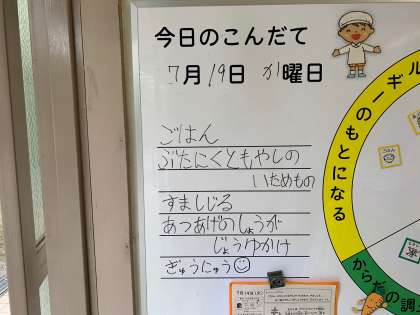 今日のこんだて
7月19日 火曜日
ごはん
ぶたにくともやしの
いためもの
すましじる
あつあげのしょうが
じょうゆかけ
ぎゅうにゅう
ギル
ーのもとになる
ごはん
からだの調